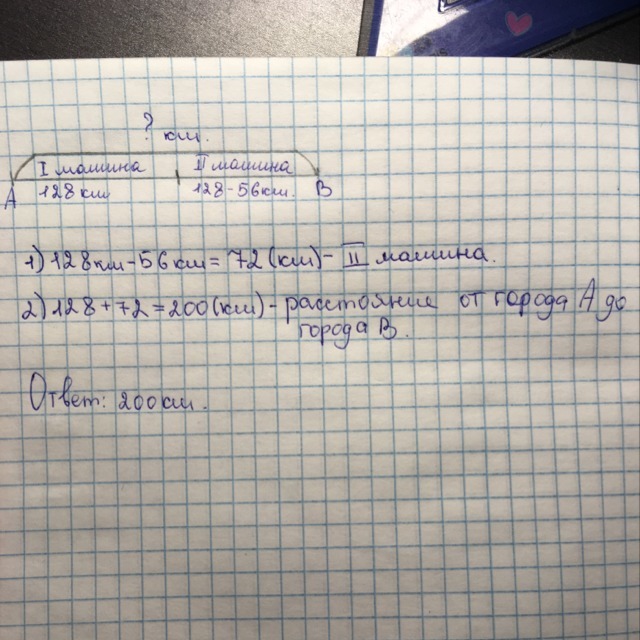 ? км.
I машина II машина
А 128 км 128-56км. В
1) 128км-56км=72(км)- II машина.
2) 128+72=200(км)-расстояние от города А до
города В.
Ответ: 200км.